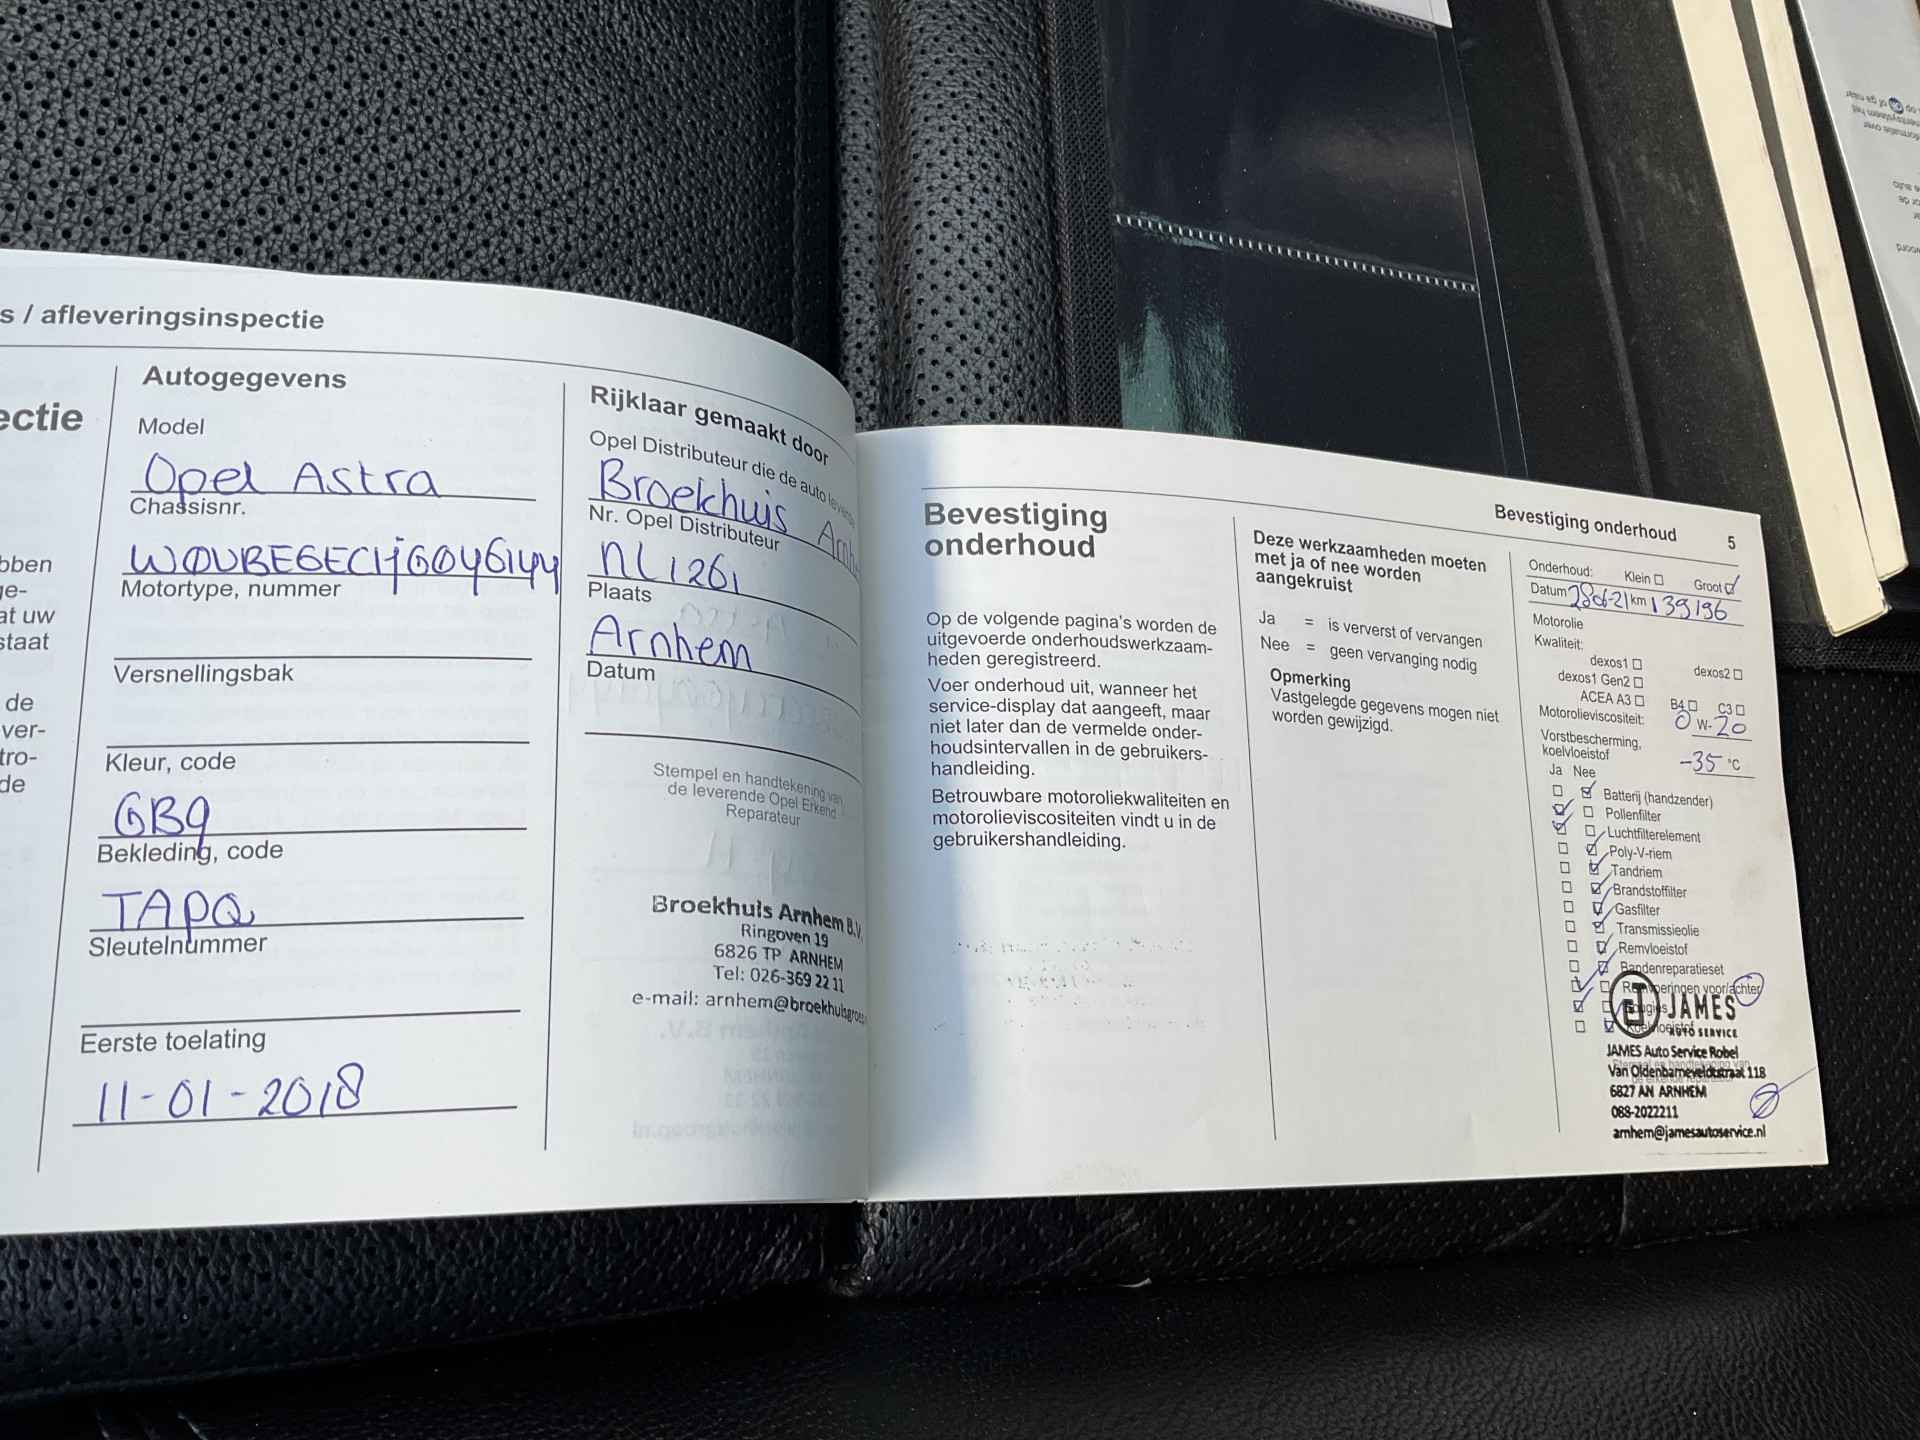 s / afleveringsinspectie
ectie
bben
ge-
at uw
staat
de
ver-
tro-
de
Autogegevens
Model
Opel Astra
Chassisnr.
Motortype, nummer
Versnellingsbak
Kleur, code
GB9
Bekleding, code
TAPQ
Sleutelnummer
Eerste toelating
11-01-2018
Rijklaar gemaakt door
Opel Distributeur die de auto leverde
Broekhuis Arnhe
Nr. Opel Distributeur
NL1261
Plaats
Arnhem
Datum
Stempel en handtekening van
de leverende Opel Erkend
Reparateur
Broekhuis Arnhem B.V.
Ringoven 19
6826 TP ARNHEM
Tel: 026-369 22 11
e-mail: arnhem@broekhuisgroep
Bevestiging
onderhoud
Op de volgende pagina's worden de
uitgevoerde onderhoudswerkzaam-
heden geregistreerd.
Voer onderhoud uit, wanneer het
service-display dat aangeeft, maar
niet later dan de vermelde onder-
houdsintervallen in de gebruikers-
handleiding.
Betrouwbare motoroliekwaliteiten en
motorolieviscositeiten vindt u in de
gebruikershandleiding.
Deze werkzaamheden moeten
met ja of nee worden
aangekruist
Ja = is ververst of vervangen
Nee = geen vervanging nodig
Opmerking
Vastgelegde gegevens mogen niet
worden gewijzigd.
Bevestiging onderhoud 5
Onderhoud: Klein Groot
Datum 28-6-21 km 139196
Motorolie
Kwaliteit:
dexos1 dexos2
dexos1 Gen2
ACEA A3 B4 C3
Motorolieviscositeit: 0 W-20
Vorstbescherming,
koelvloeistof -35 °C
Ja Nee
Batterij (handzender)
Pollenfilter
Luchtfilterelement
Poly-V-riem
Tandriem
Brandstoffilter
Gasfilter
Transmissieolie
Remvloeistof
Bandenreparatieset
Remvoeringen voor/achter
Bougies
Koelvloeistof
JAMES
AUTO SERVICE
JAMES Auto Service Robel
Stempel en handtekening van
Van Oldenbarneveldtstraat 118
de erkende reparateur
6827 AN ARNHEM
088-2022211
arnhem@jamesautoservice.nl